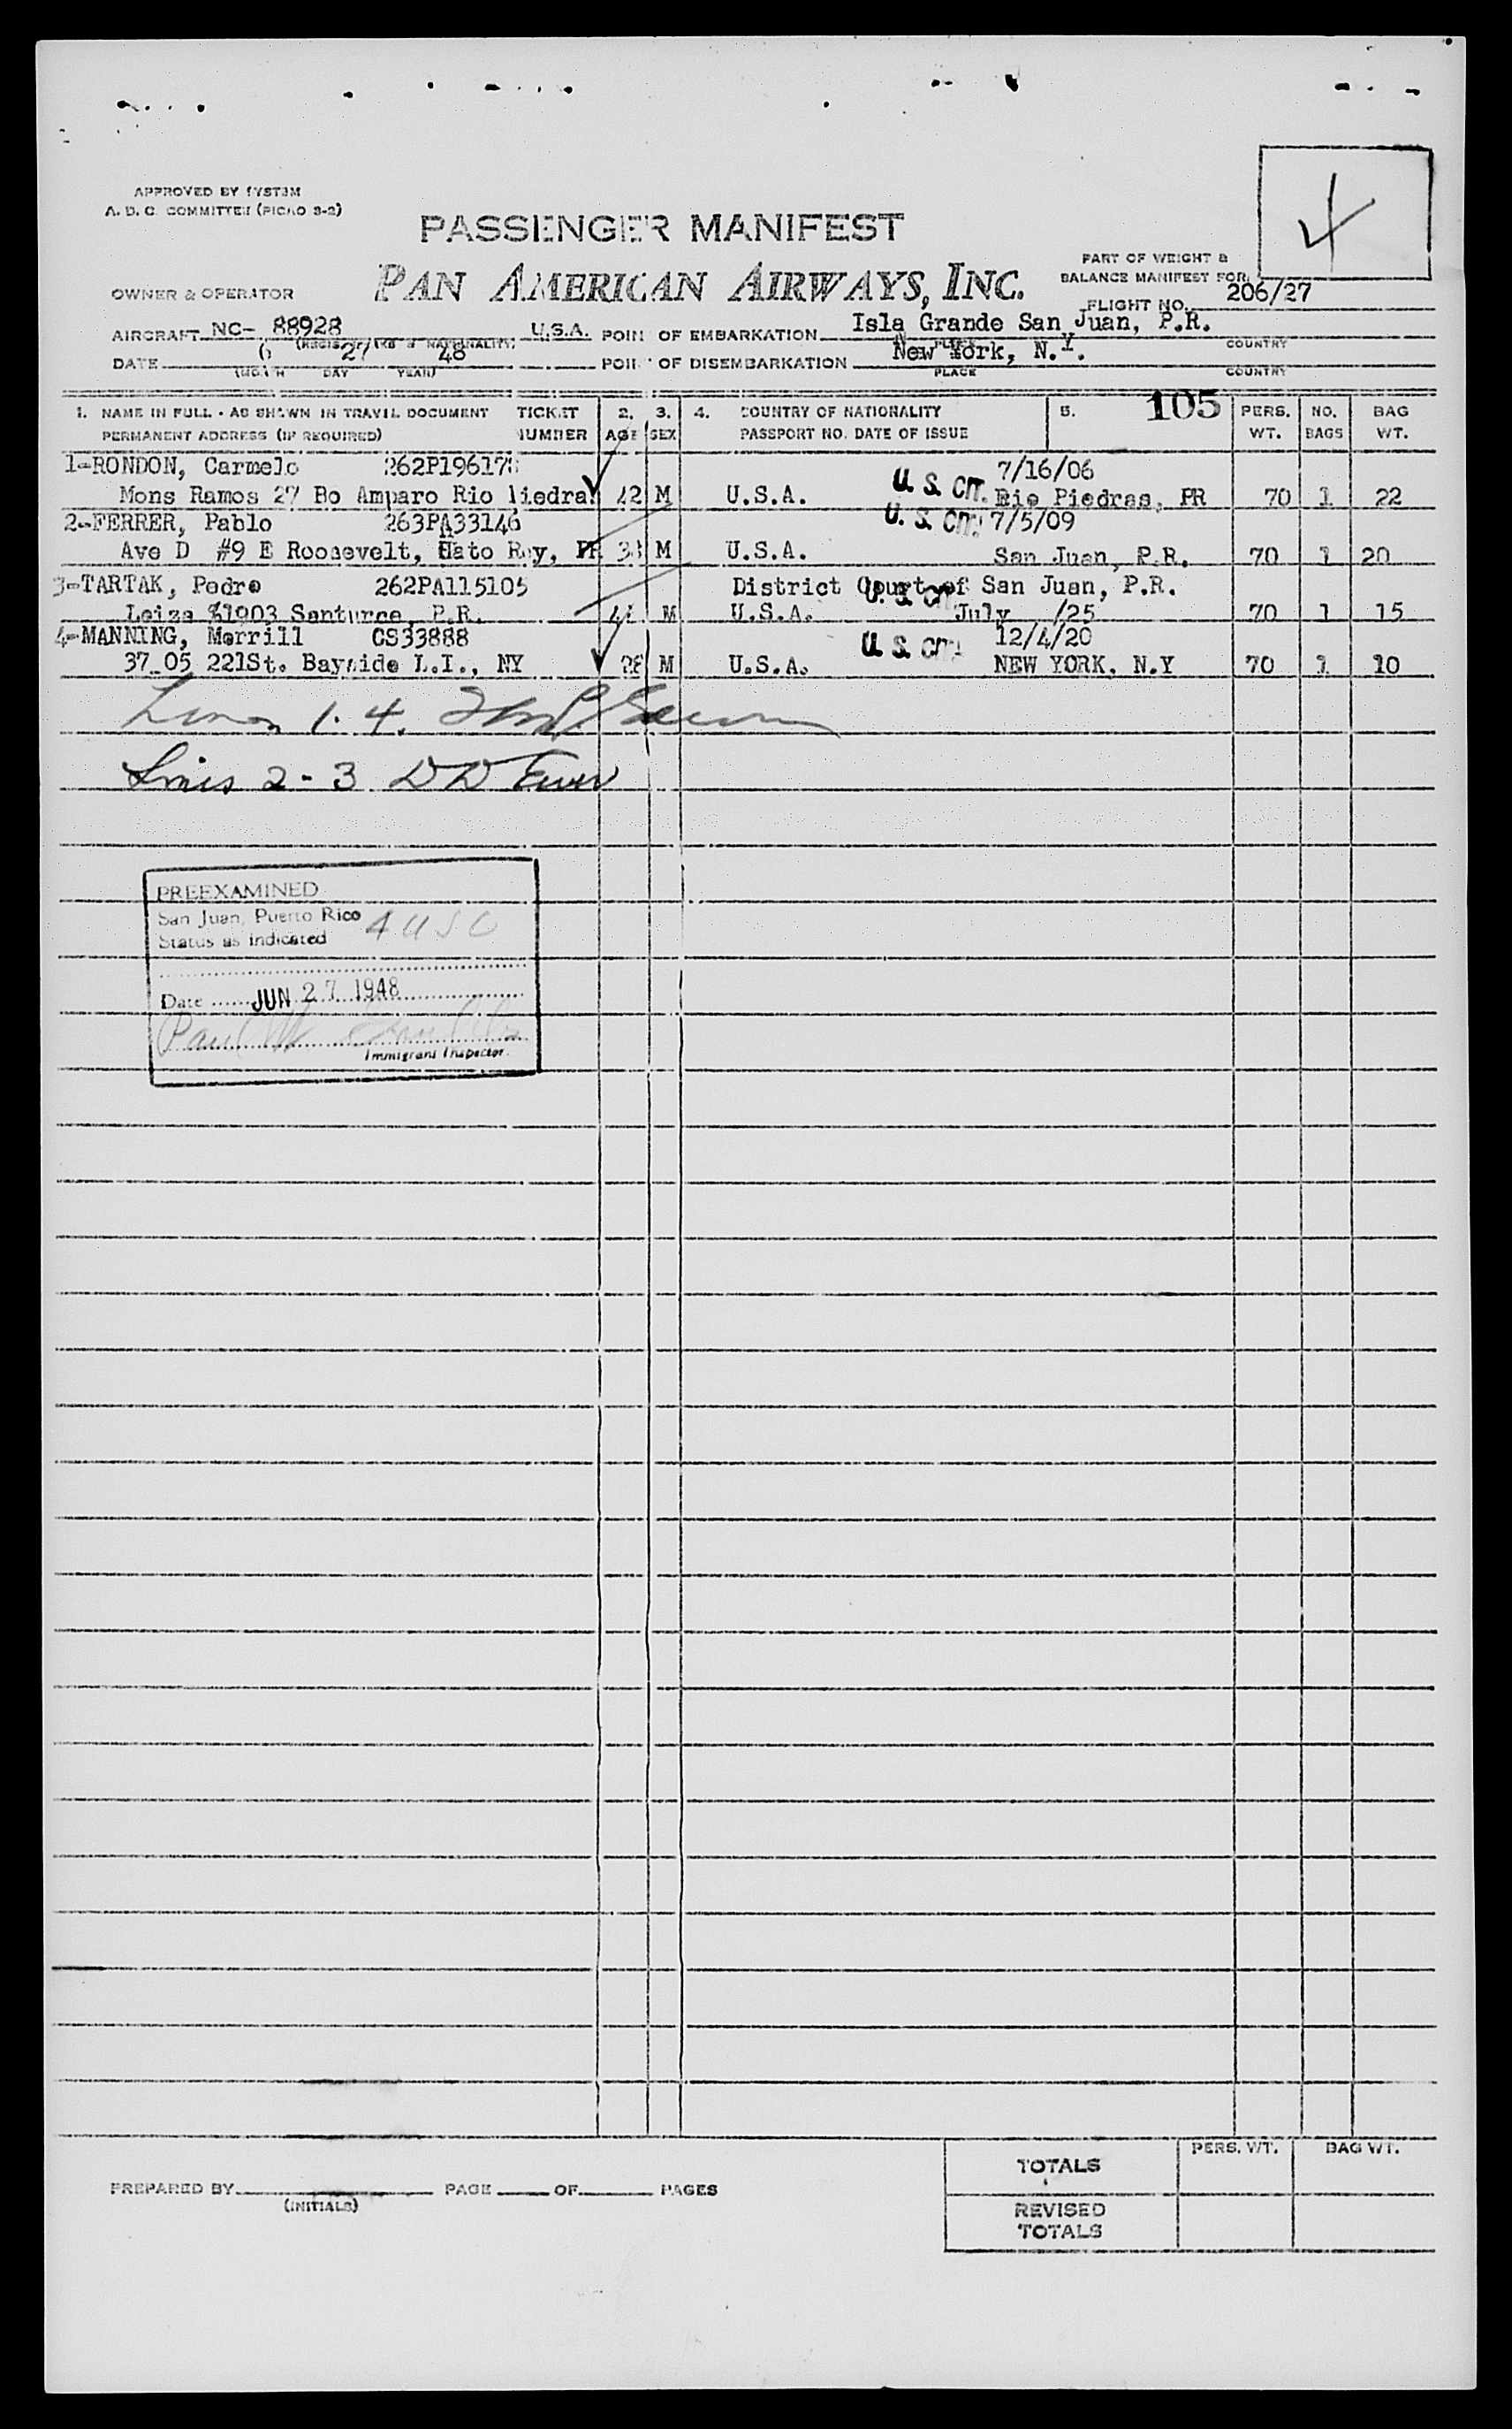 APPROVED BY SYSTEM
A. D. C. COMMITTEE (PICAO 3-2)
4
PASSENGER MANIFEST
PAN AMERICAN AIRWAYS, INC.
PART OF WEIGHT &
BALANCE MANIFEST FOR
OWNER & OPERATOR
FLIGHT NO. 206/27
AIRCRAFT NC- 88928 U.S.A. POINT OF EMBARKATION Isla Grande San Juan, P.R.
PLACE COUNTRY
DATE 6 27 48 POINT OF DISEMBARKATION New York, N.Y.
MONTH DAY YEAR PLACE COUNTRY
1. NAME IN FULL - AS SHOWN IN TRAVEL DOCUMENT TICKET 2. 3. 4. COUNTRY OF NATIONALITY 5. 105 PERS. NO. BAG
PERMANENT ADDRESS (IF REQUIRED) NUMBER AGE SEX PASSPORT NO. DATE OF ISSUE WT. BAGS WT.
1-RONDON, Carmelo 7/16/06
Mons Ramos 27 Bo Amparo Rio Piedras 42 M U.S.A. U. S. CIT. Rio Piedras, PR 70 1 22
2-FERRER, Pablo 263PA33146 U. S. CIT. 7/5/09
Ave D #9 E Roosevelt, Hato Rey, PR 38 M U.S.A. San Juan, P.R. 70 1 20
3-TARTAK, Pedro 262PA115105 District Court of San Juan, P.R.
Loiza #1903 Santurce, P.R. M U.S.A. U. S. CIT. July /25 70 1 15
4-MANNING, Merrill CS33888 U. S. CIT. 12/4/20
37-05 221St. Bayside L.I., NY 28 M U.S.A. NEW YORK, N.Y 70 1 10
1. 4.
Lines 2 - 3 D D
PREEXAMINED
San Juan, Puerto Rico 4 USC
Status as indicated
Date JUN 27 1948
Paul
Immigrant Inspector.
PERS. WT. BAG WT.
TOTALS
PREPARED BY PAGE OF PAGES
(INITIALS)
REVISED
TOTALS